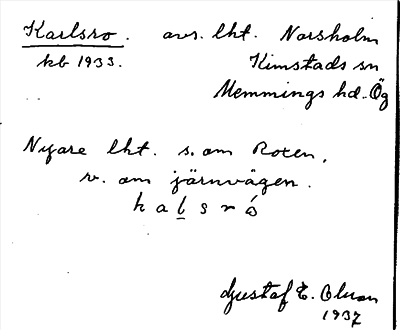 Karlsro. avs. lht. Norsholm
kb 1933. Kimstads sn
Memmings hd. Ög
Nyare lht. s. om Roxen,
v. om järnvägen.
kalsró
Gustaf E. Olson
1937